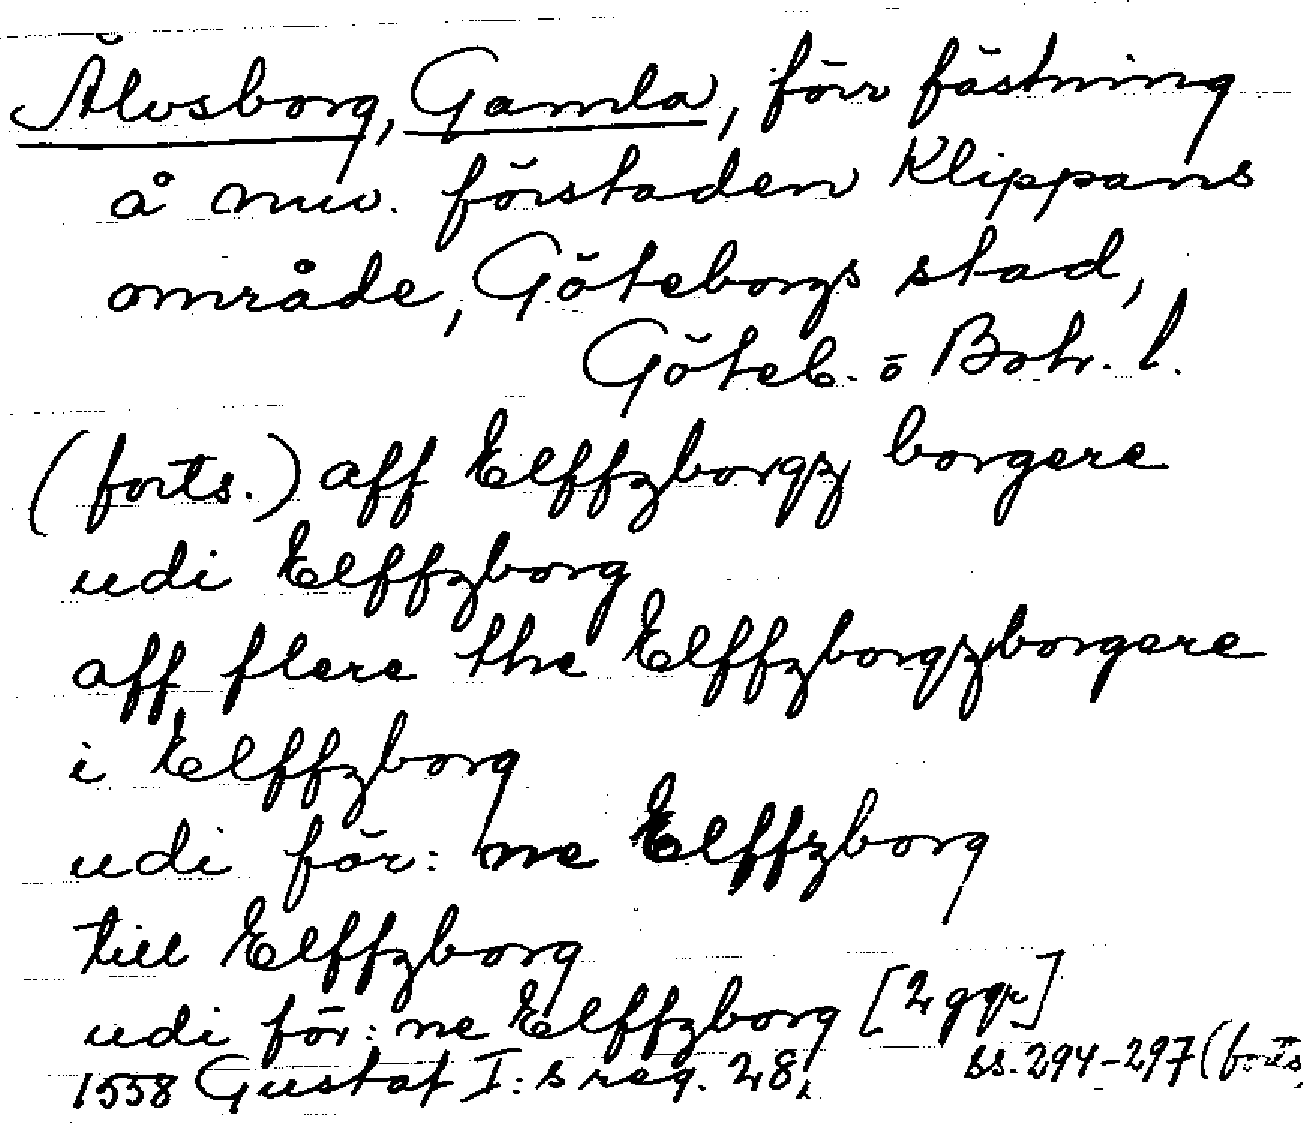 Älvsborg, Gamla, förr fästning
å nuv. förstaden Klippans
område, Göteborgs stad,
Göteb. o Boh. l.
(forts.) aff Elffzborgz borgere
udi Elffzborg
aff flere the Elffzborgzborgere
i Elffzborg
udi för: ne Elffzborg
till Elffzborg
udi för: ne Elffzborg [2 ggr]
1558 Gustaf I: s reg. 28, ss. 294-297 (forts.